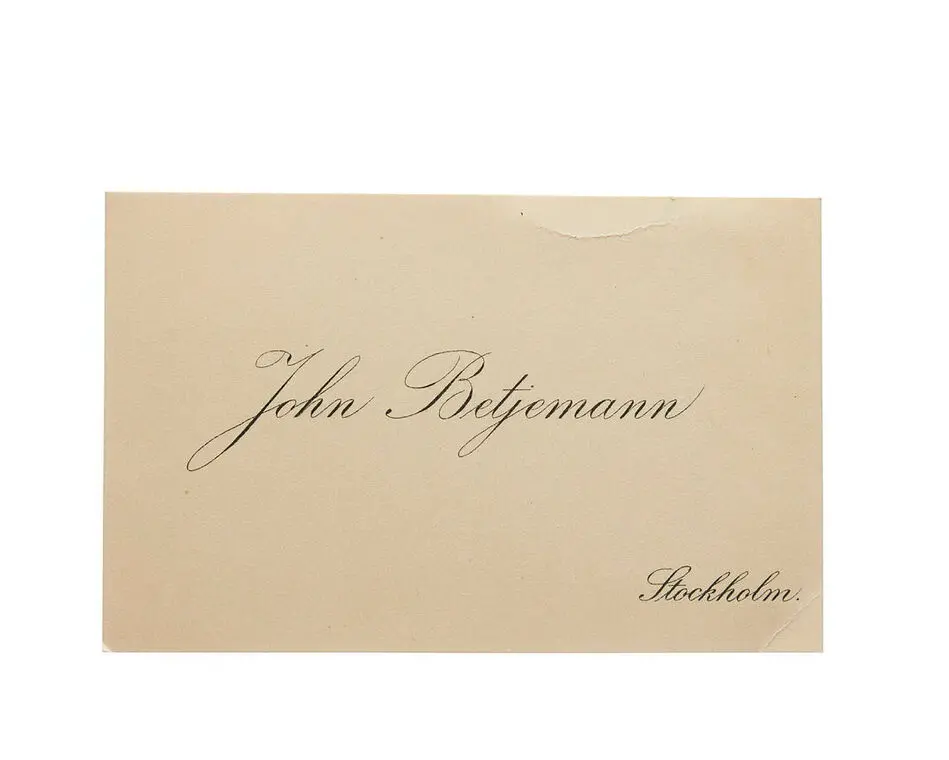 John Betjemann
Stockholm.